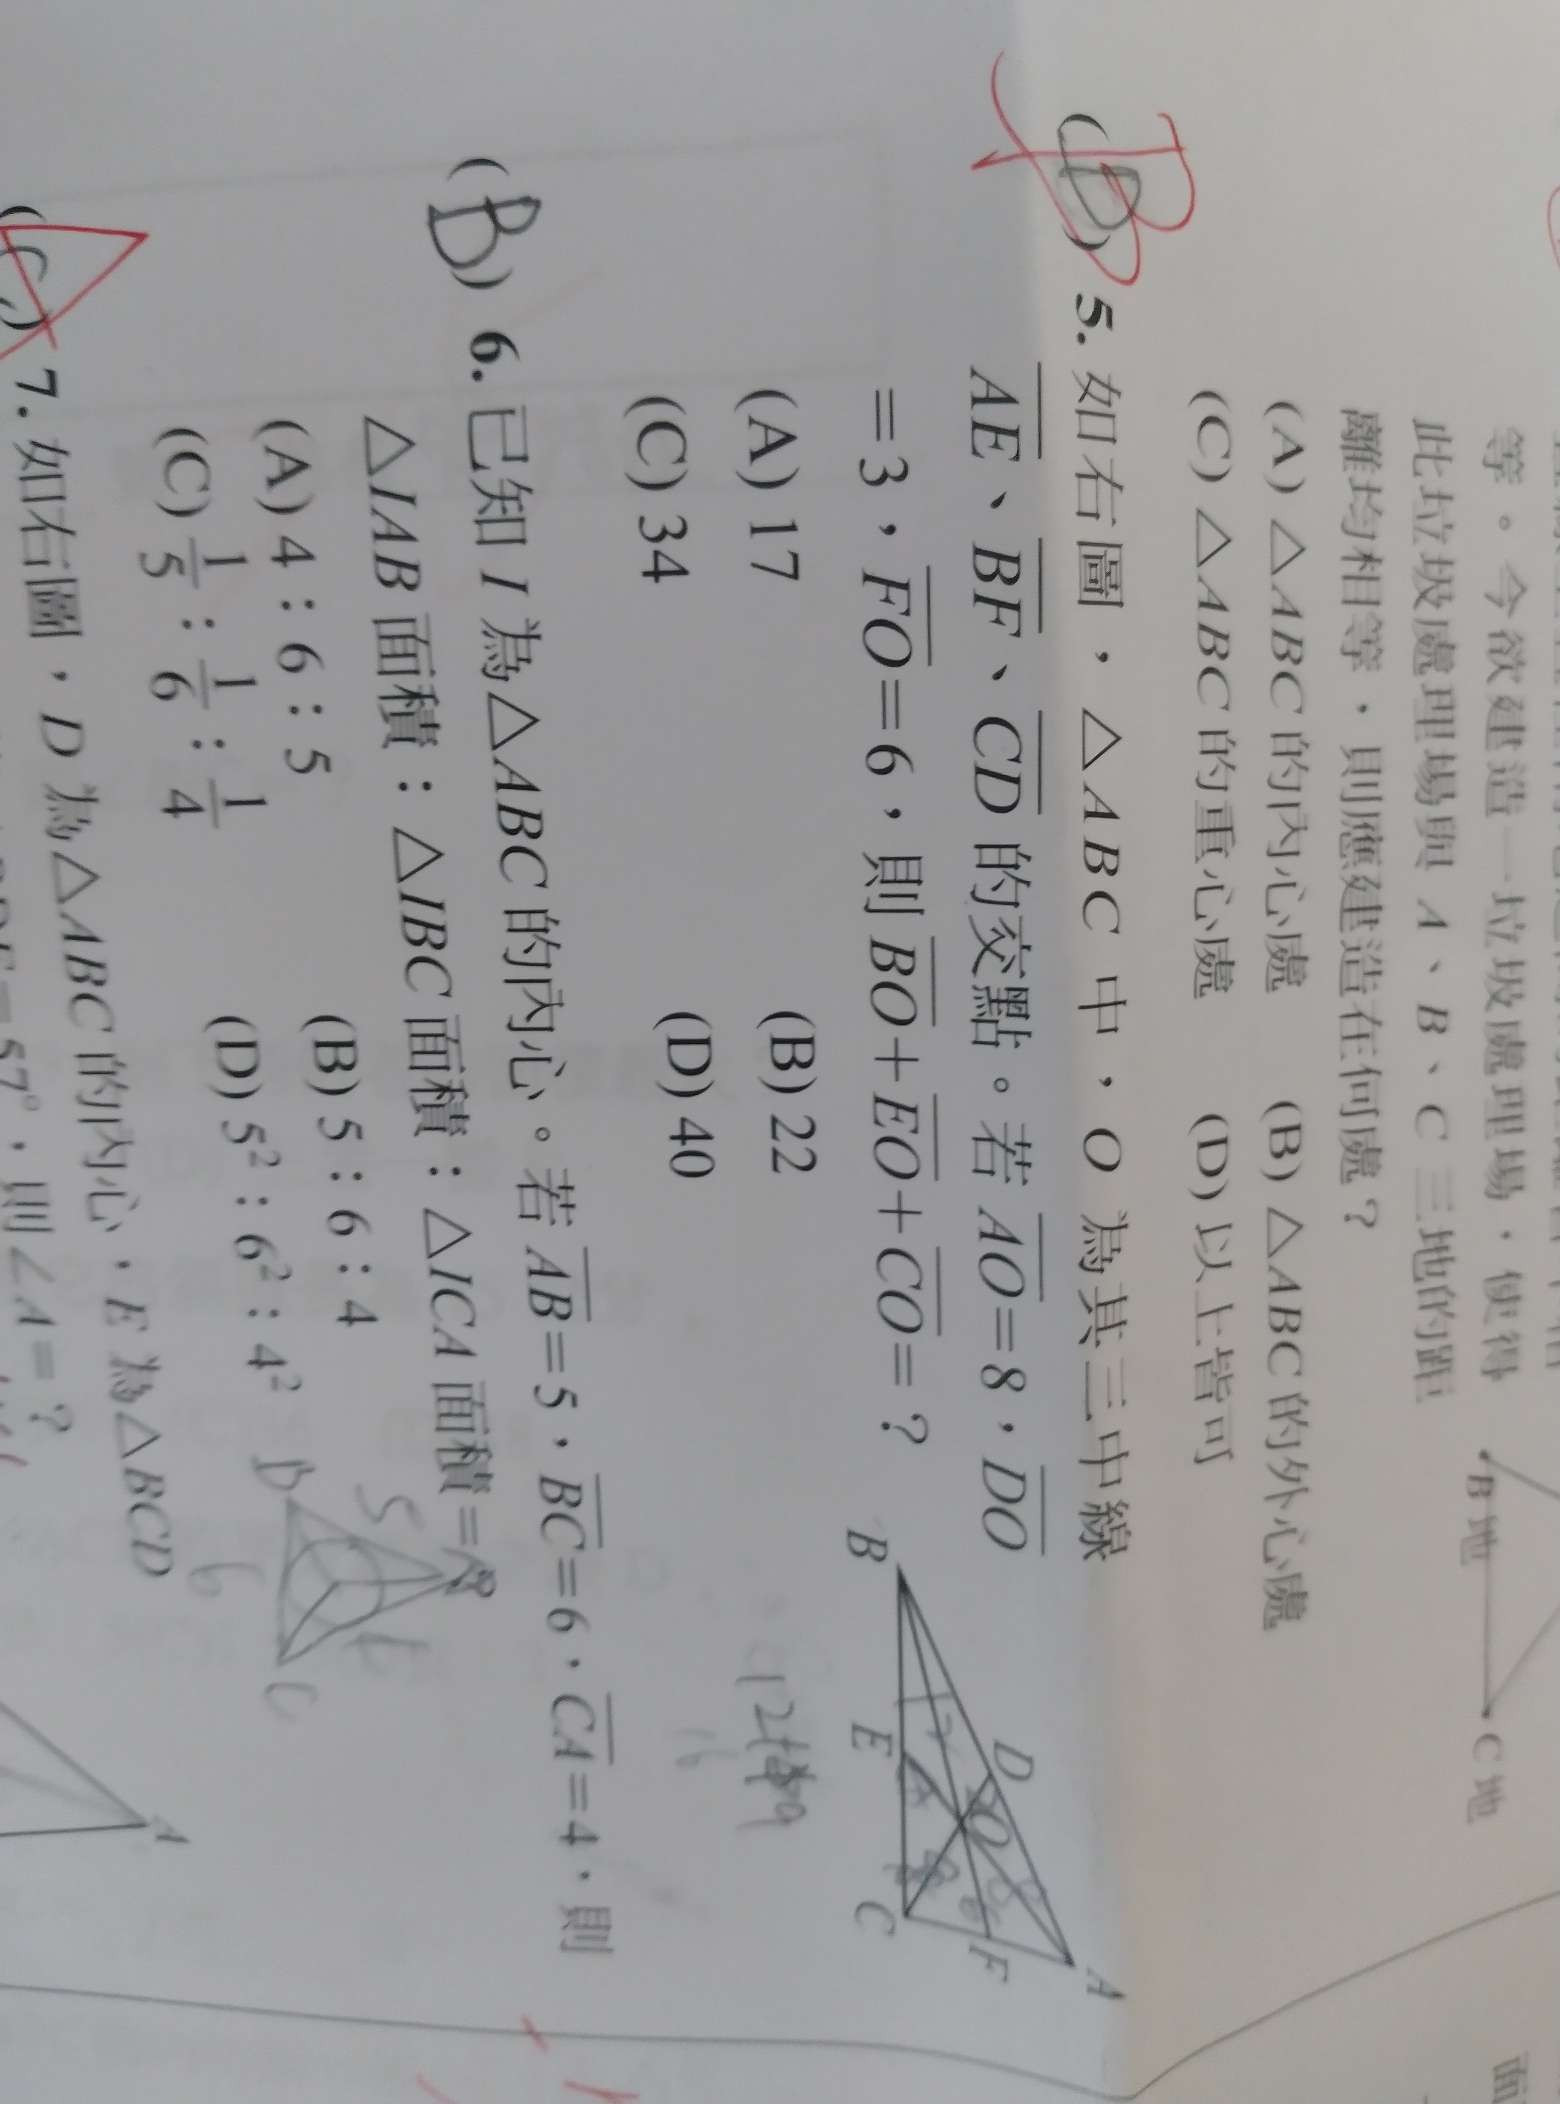 等。今欲建造一垃圾處理場，使得
此垃圾處理場與 A、B、C 三地的距
離均相等，則應建造在何處？
(A) △ABC 的內心處 (B) △ABC 的外心處
(C) △ABC 的重心處 (D) 以上皆可
B地
C地
B
(D) 5. 如右圖，△ABC 中，O 為其三中線
AE、BF、CD 的交點。若 AO=8，DO
=3，FO=6，則 BO+EO+CO=？
(A) 17 (B) 22
(C) 34 (D) 40
A
B
C
D
E
F
O
(B) 6. 已知 I 為△ABC 的內心。若 AB=5，BC=6，CA=4，則
△IAB 面積：△IBC 面積：△ICA 面積=？
(A) 4：6：5 (B) 5：6：4
(C) 1/5：1/6：1/4 (D) 5²：6²：4²
5
6
C
(C) 7. 如右圖，D 為△ABC 的內心，E 為△BCD
=57°，則∠A=？
A
面